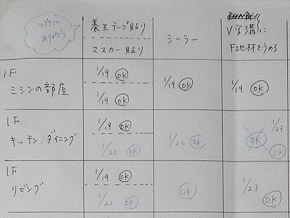 養生テープ貼り
マスカー貼り
シーラー
V字溝に
下地材をうめる
1F
ミシンの部屋
1/19 OK
1/19 OK
1/19 OK
1/19 OK
1F
キッチン.ダイニング
1/19 OK
1/22 OK
1/22 OK
1/23 OK
1F
リビング
1/19 OK
1/22 OK
OK
1/23 OK